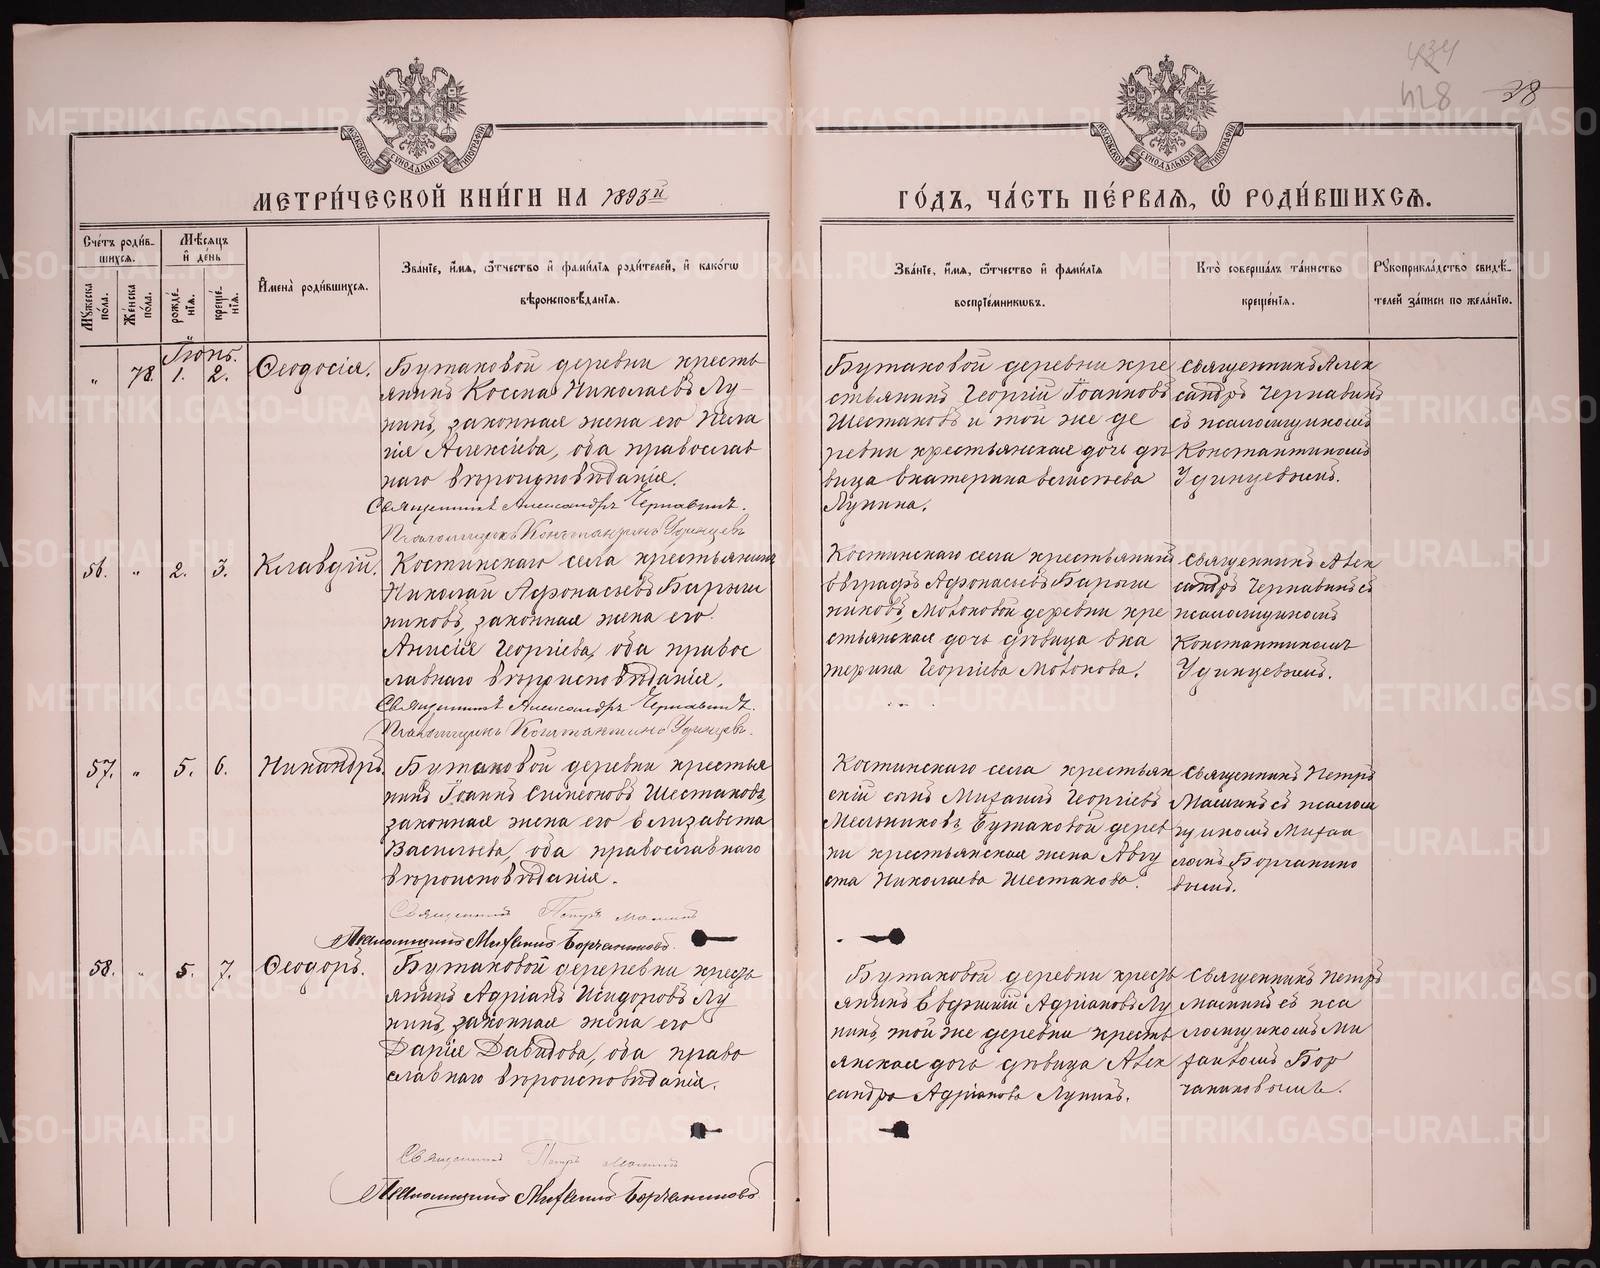 434
428
38
МОСКОВСКОЙ СѴНОДАЛЬНОЙ ТИПОГРАФІИ
МОСКОВСКОЙ СѴНОДАЛЬНОЙ ТИПОГРАФІИ
МЕТРИ́ЧЕСКОЙ КНИ́ГИ НА 1893й
ГО́ДЪ, ЧА́СТЬ ПЕ́РВАЯ, Ѡ РОДИ́ВШИХСЯ.
Сче́тъ роди́в-
шихся.
Мѣ́сяцъ
и де́нь
Му́жеска
по́ла.
Же́нска
по́ла.
рожде́-
нія.
креще́-
нія.
И́мена роди́вшихся.
Зва́ніе, и́мя, ѻ҆́тчество и фами́лія роди́телей, и како́гѡ
вѣроисповѣ́данія.
Зва́ніе, и́мя, ѻ҆́тчество и фами́лія
воспріе́мниковъ.
Кто̀ соверша́лъ та́инство
креще́нія.
Рукоприкла́дство свидѣ́-
телей за́писи по жела́нію.
Іюнь.
„ 78. 1. 2. Ѳеодосія.
Бутаковой деревни кресть
янинъ Косма Николаевъ Лу-
нинъ, законная жена его Пела
гія Алексіева, оба православ
наго вѣроисповѣданія.
Священникъ Александръ Чернавинъ.
Псаломщикъ Константинъ Удинцевъ
Бутаковой деревни кре
стьянинъ Георгій Іоанновъ
Шестаковъ и той же де
ревни крестьянская дочь дѣ
вица Екатерина
Лунина.
Священникъ Алек
сандръ Чернавинъ
съ псаломщикомъ
Константиномъ
Удинцевымъ.
56. „ 2. 3. Клавдій.
Костинскаго села крестьянинъ
Николай Афонасьевъ Барыш
никовъ, законная жена его
Анисія Георгіева, оба правос
лавнаго вѣроисповѣданія.
Священникъ Александръ Чернавинъ.
Псаломщикъ Константинъ Удинцевъ.
Костинскаго села крестьянинъ
Евграфъ Афонасьевъ Барыш
никовъ, Мотоковой деревни кре
стьянская дочь дѣвица Ека
терина Георгіева Мотокова.
Священникъ Алек
сандръ Чернавинъ съ
псаломщикомъ
Константиномъ
Удинцевымъ.
57. „ 5. 6. Никандръ.
Бутаковой деревни крестья
нинъ Іоаннъ Симеоновъ Шестаковъ,
законная жена его Елизавета
Васильева, оба православнаго
вѣроисповѣданія.
Священникъ Петръ Маминъ
Псаломщикъ Михаилъ Борчаниновъ.
Костинскаго села крестьян
скій сынъ Михаилъ Георгіевъ
Мельниковъ, Бутаковой дерев
ни крестьянская жена Авгу
ста Николаева Шестакова.
Священникъ Петръ
Маминъ съ псалом
щикомъ Михаи
ломъ Борчанино
вымъ.
58. „ 5. 7. Ѳеодоръ.
Бутаковой дереревни кресть
янинъ Адріанъ Исидоровъ Лу
нинъ, законная жена его
Дарія Давидова, оба право
славнаго вѣроисповѣданія.
Священникъ Петръ Маминъ
Псаломщикъ Михаилъ Борчаниновъ
Бутаковой деревни кресть
янинъ Евфимій Адріановъ Лу
нинъ, той же деревни кресть
янская дочь дѣвица Алек
сандра Адріанова Лунинъ.
Священникъ Петръ
Маминъ съ пса
ломщикомъ Ми
хаиломъ Бор
чаниновымъ.